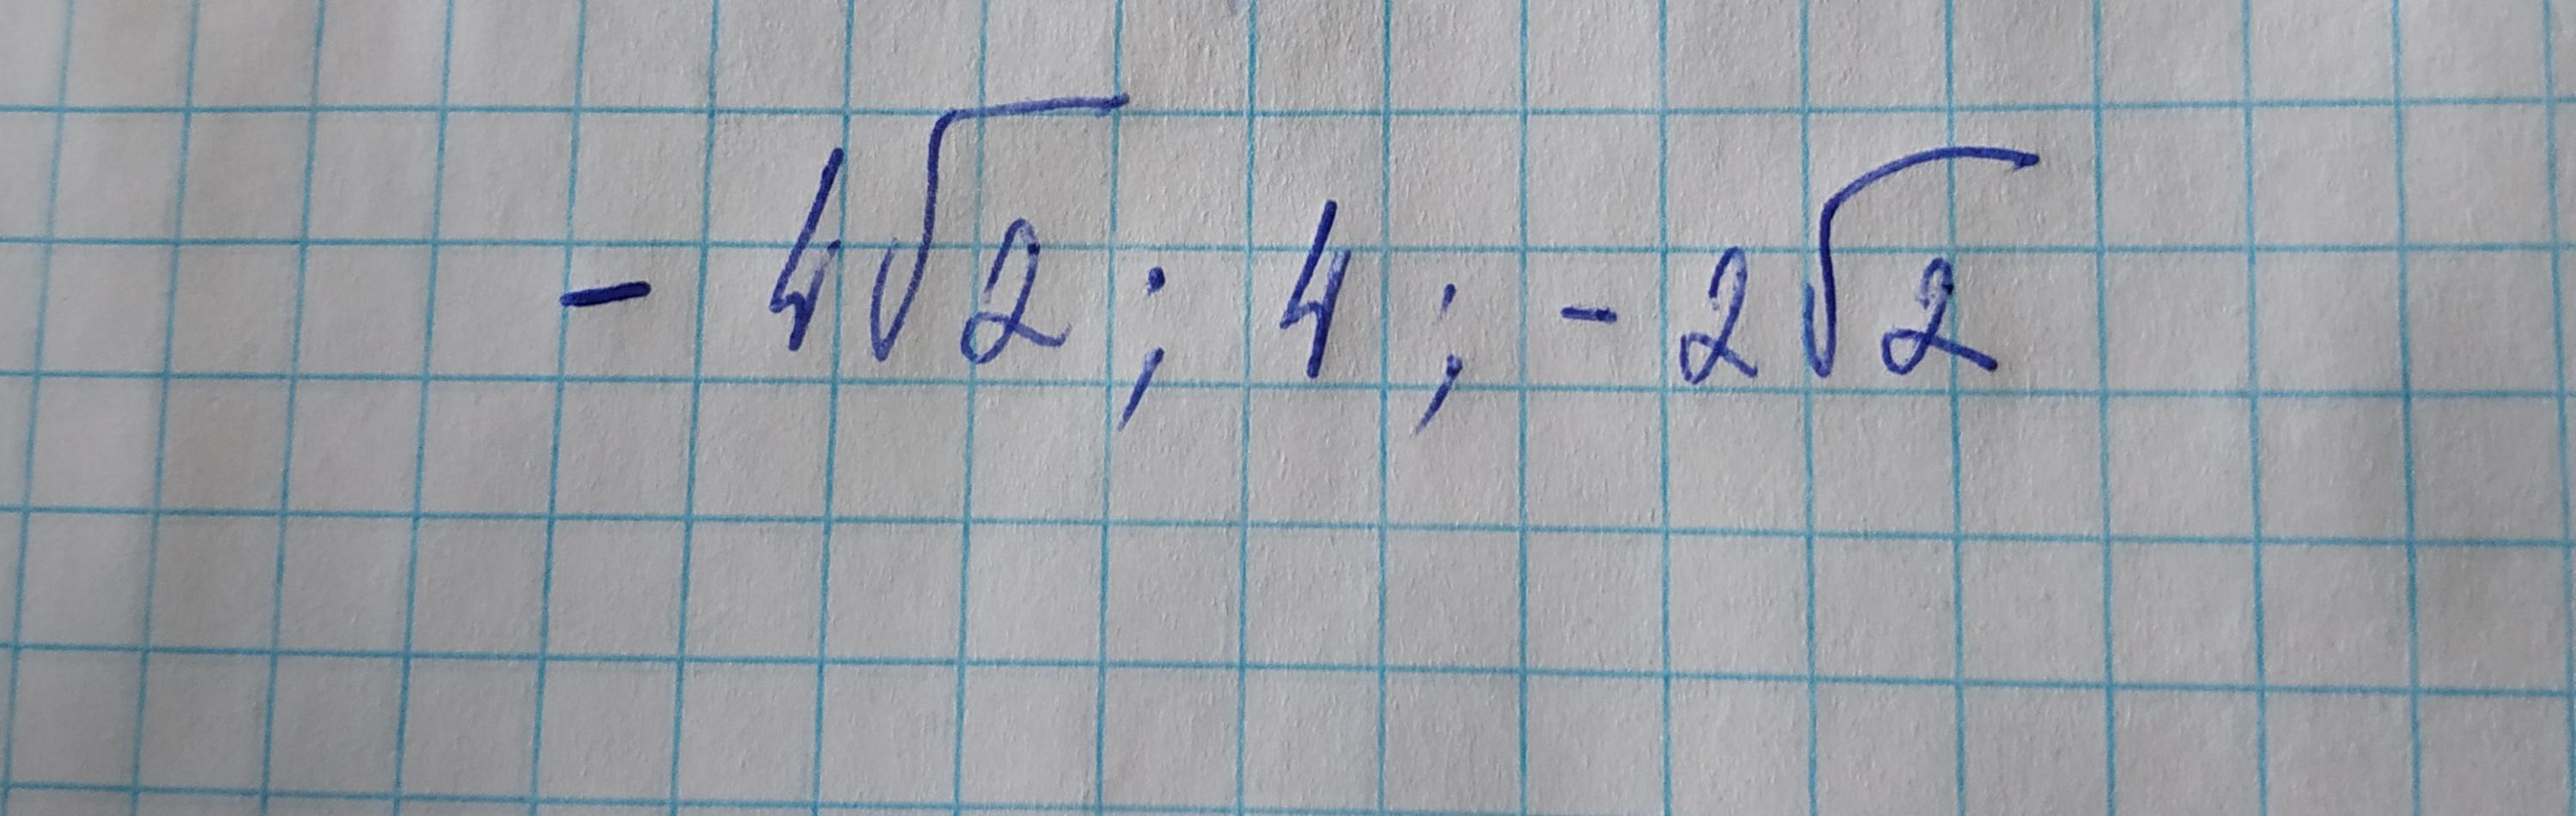 - 4√2 ; 4 ; - 2√2